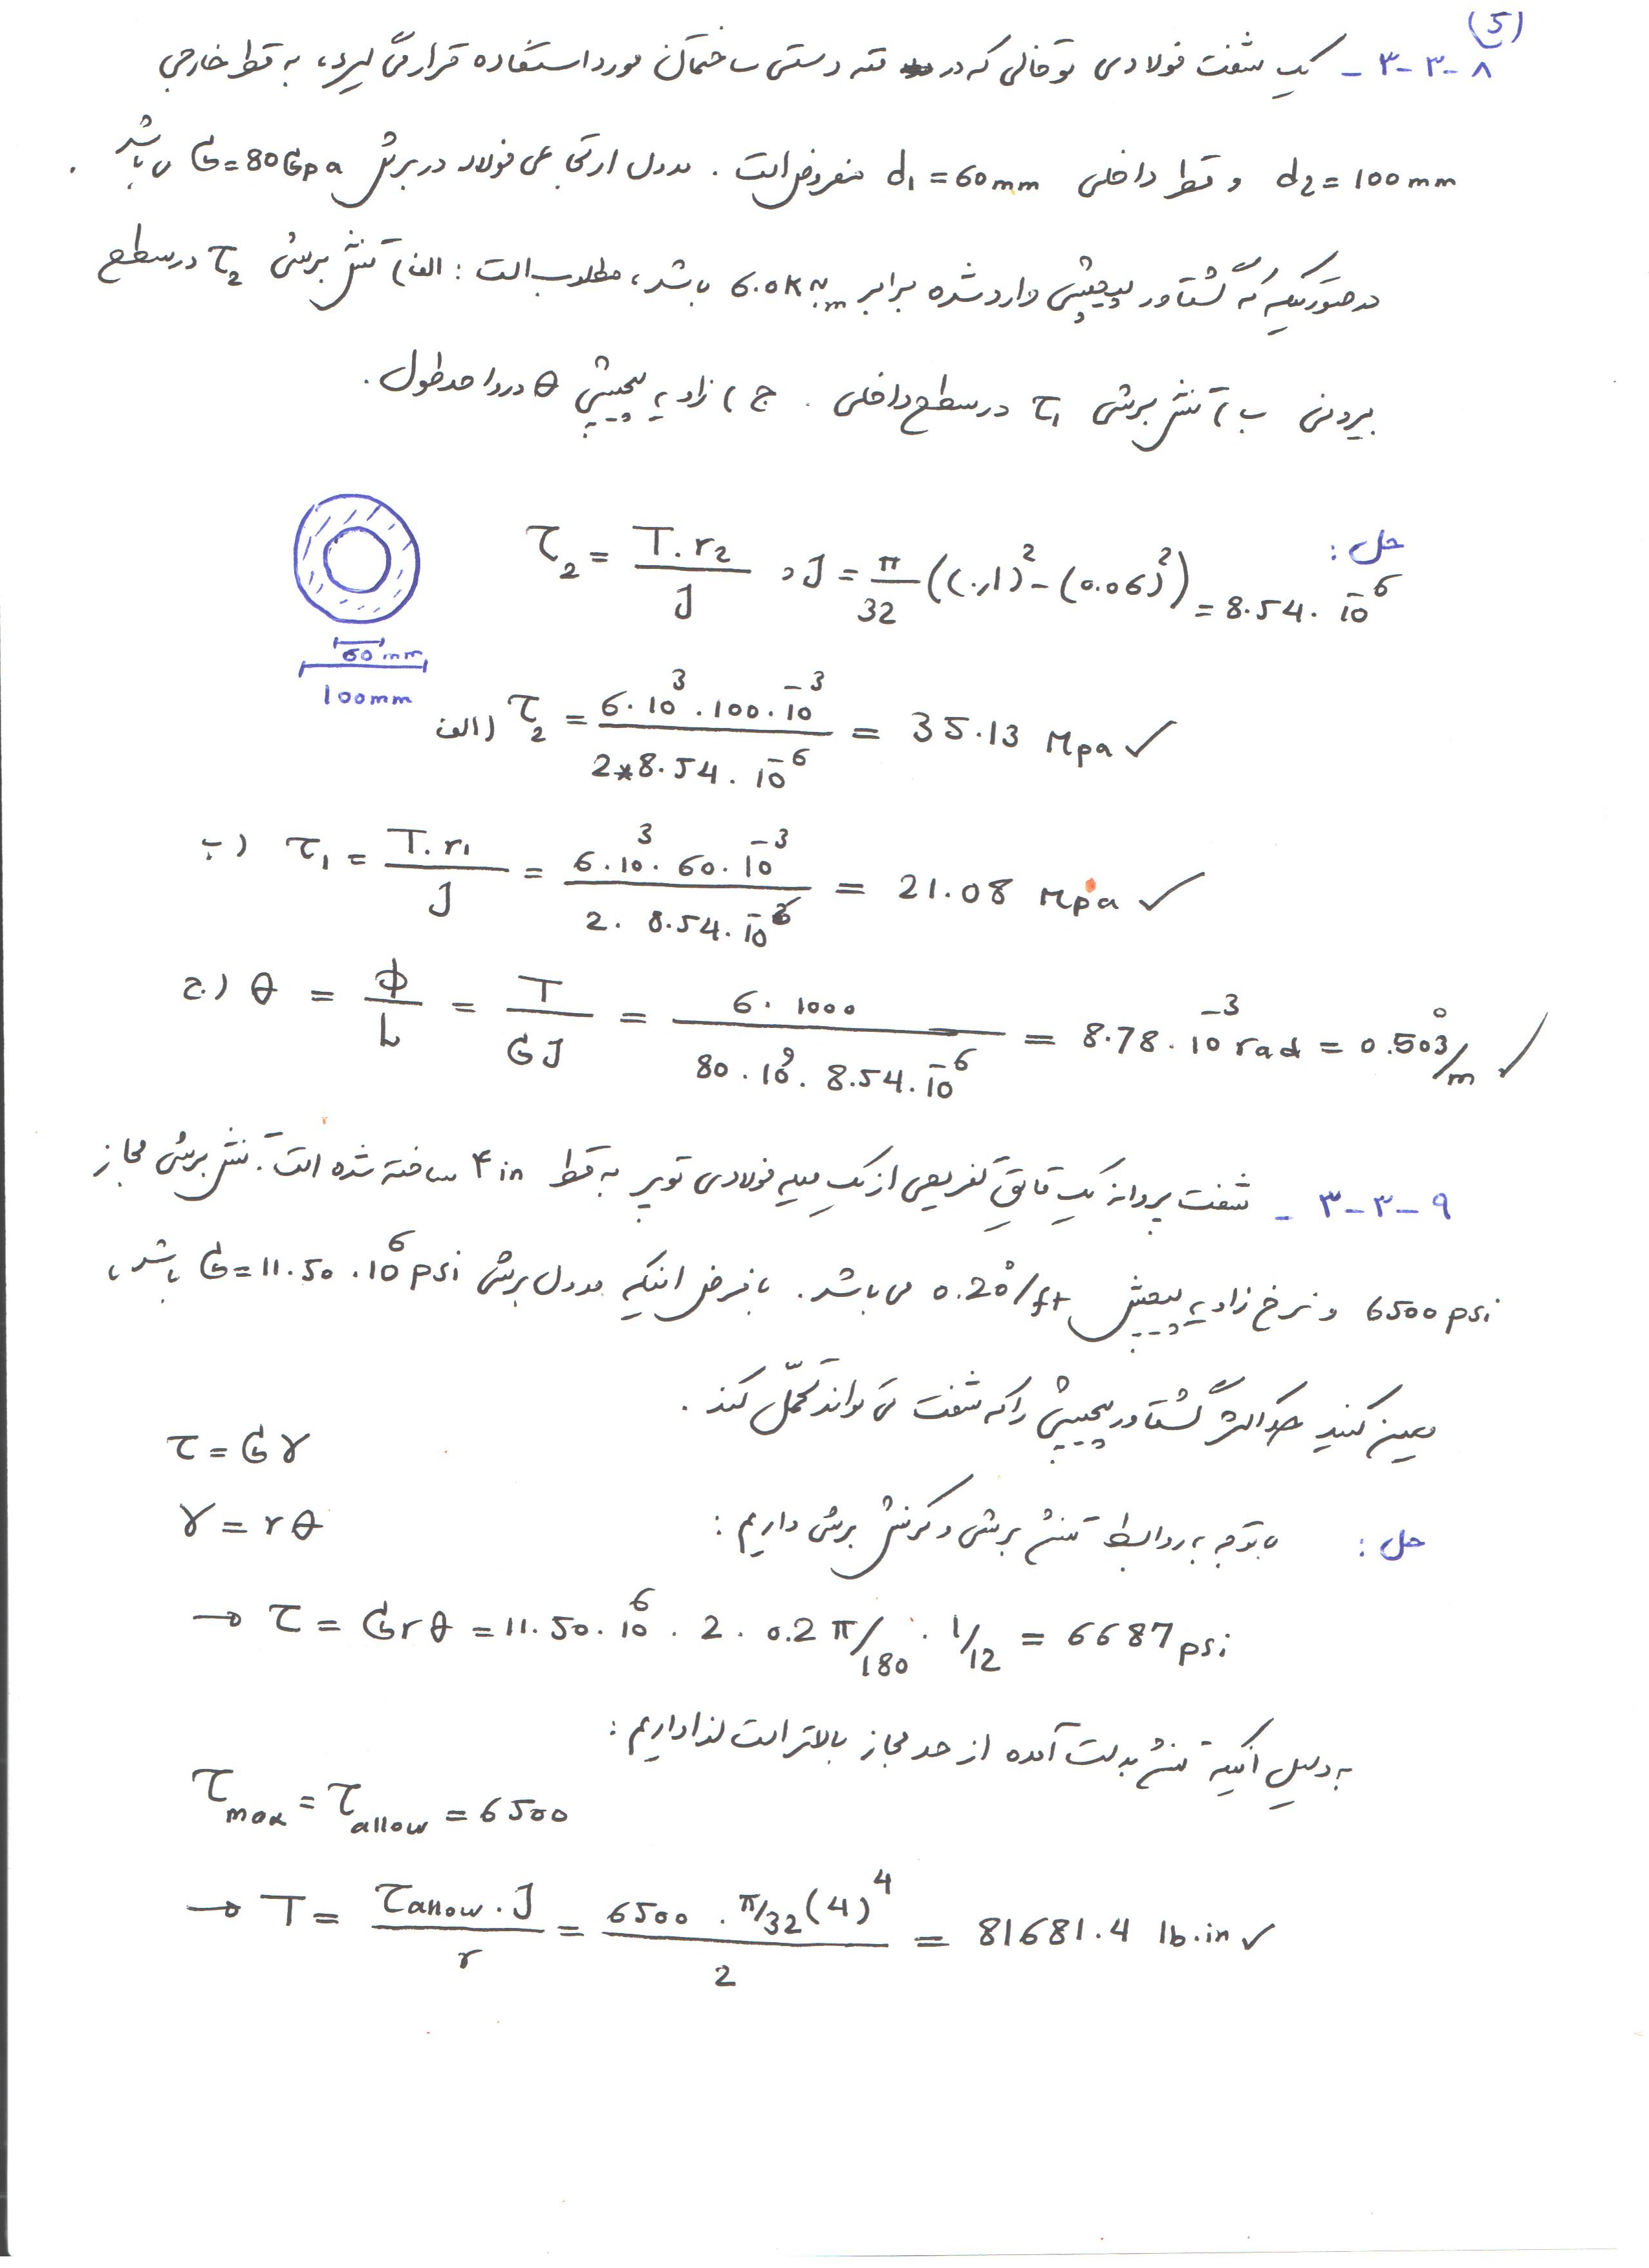 (5)
۳-۳-۸ - یک شفت فولادی توخالی که در مته دستی ساختمان مورد استفاده قرار می گیرد، به قطر خارجی
d2 = 100 mm و قطر داخلی d1 = 60 mm مفروض است. مدول ارتجاعی فولاد در برش G = 80 Gpa می باشد.
در صورتیکه گشتاور پیچشی وارد شده برابر 6.0 KN.m باشد، مطلوب است: الف) تنش برشی τ2 در سطح
بیرونی ب) تنش برشی τ1 در سطح داخلی. ج) زاویه پیچش θ در واحد طول.
حل:
τ2 = T.r2 / J , J = π/32 ((0.1)^2 - (0.06)^2) = 8.54 . 10^-6
60 mm
100 mm
الف) τ2 = 6.10^3 . 100 . 10^-3 / 2*8.54 . 10^-6 = 35.13 Mpa ✓
ب) τ1 = T.r1 / J = 6.10^3 . 60 . 10^-3 / 2 . 8.54 . 10^-6 = 21.08 Mpa ✓
ج) θ = Φ/L = T/GJ = 6 . 1000 / 80 . 10^9 . 8.54 . 10^-6 = 8.78 . 10^-3 rad = 0.503°/m ✓
۳-۳-۹ - شفت پروانه یک قایق تفریحی از یک میله فولادی توپر به قطر ۴ in ساخته شده است. تنش برشی مجاز
6500 psi و نرخ زاویه پیچش 0.20°/ft می باشد. با فرض اینکه مدول برشی G = 11.50 . 10^6 psi باشد،
معین کنید حداکثر گشتاور پیچشی را که شفت می تواند تحمّل کند.
حل: با توجه به روابط تنش برشی و کرنش برشی داریم:
τ = Gγ
γ = rθ
→ τ = Grθ = 11.50 . 10^6 . 2 . 0.2 π/180 . 1/12 = 6687 psi
به دلیل آنکه تنش بدست آمده از حد مجاز بالاتر است لذا داریم:
τmax = τallow = 6500
→ T = τallow . J / r = 6500 . π/32 (4)^4 / 2 = 81681.4 lb.in ✓